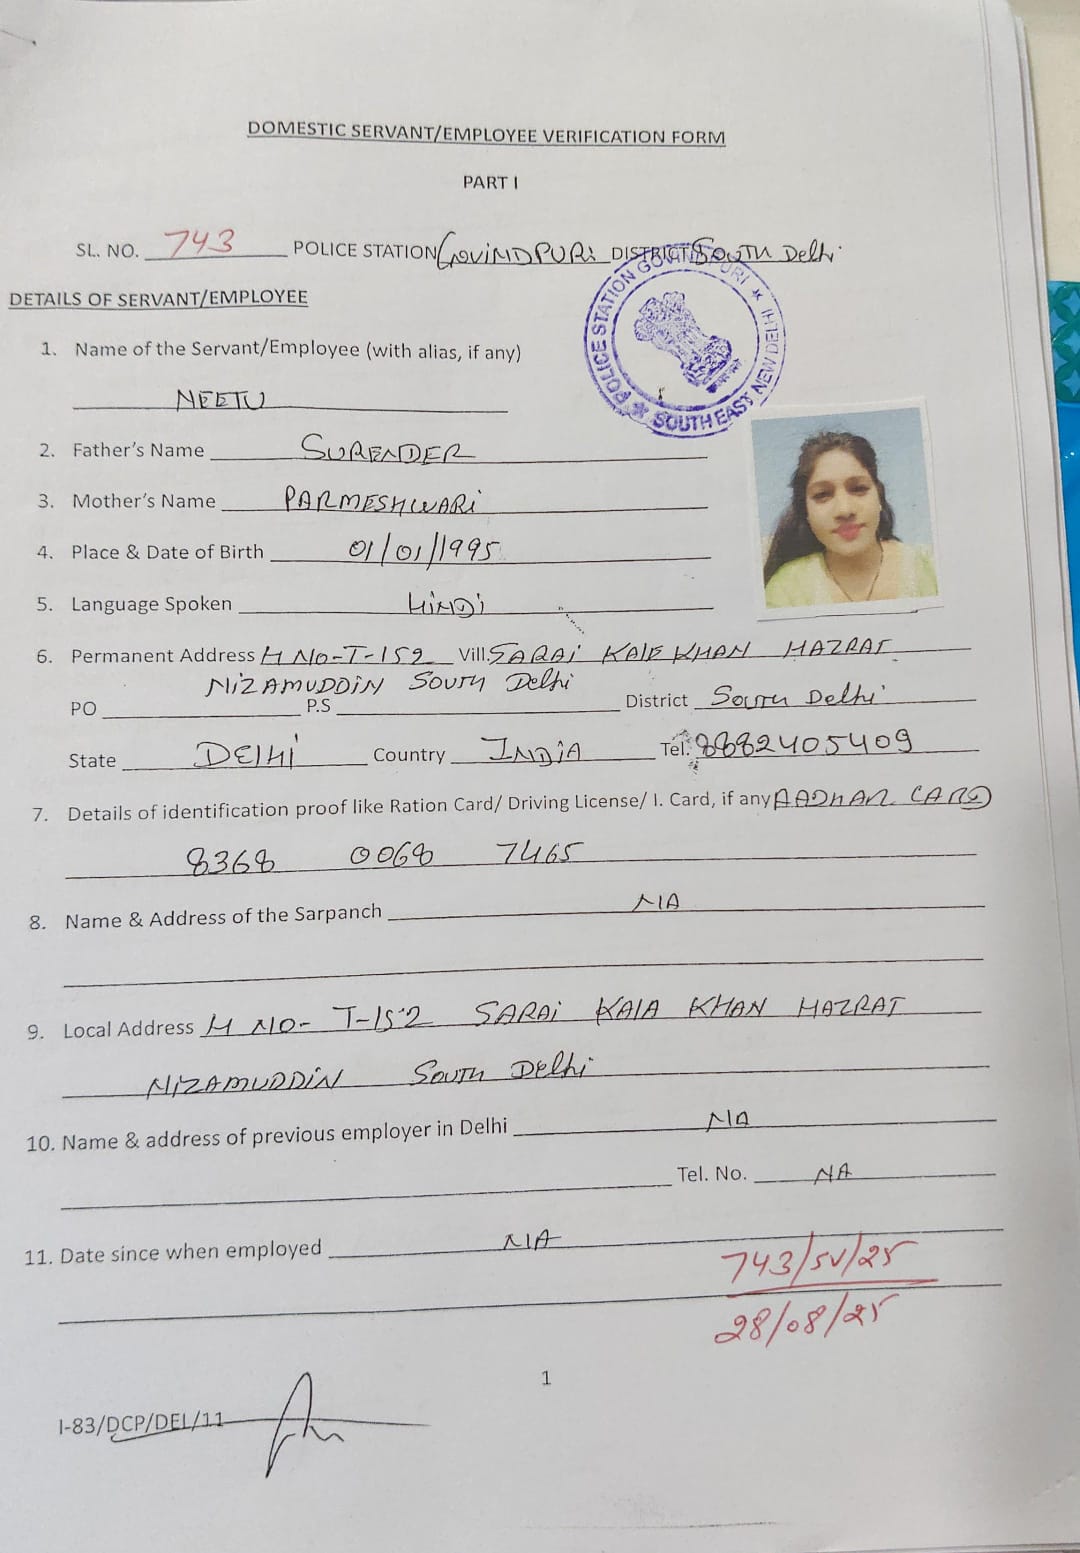 DOMESTIC SERVANT/EMPLOYEE VERIFICATION FORM
PART I
SL. NO. 743 POLICE STATION GOVINDPURi DISTRICT SOUTH Delhi
POLICE STATION GOVINDPURI ★ SOUTH EAST NEW DELHI ★
DETAILS OF SERVANT/EMPLOYEE
1. Name of the Servant/Employee (with alias, if any)
NEETU
2. Father's Name SURENDER
3. Mother's Name PARMESHWARi
4. Place & Date of Birth 01/01/1995
5. Language Spoken HiNDi
6. Permanent Address H NO-T-152 Vill. SARAi KALE KHAN HAZRAT
NiZAMUDDiN SOUTH Delhi
PO P.S District South Delhi
State DElHi Country INDiA Tel. 8882405409
7. Details of identification proof like Ration Card/ Driving License/ I. Card, if any AADHAR CARD
8368 0068 7465
8. Name & Address of the Sarpanch NA
9. Local Address H NO- T-152 SARAi KALA KHAN HAZRAT
NIZAMUDDiN SOUTH Delhi
10. Name & address of previous employer in Delhi NA
Tel. No. NA
11. Date since when employed NA
743/SV/25
28/08/25
1
I-83/DCP/DEL/11